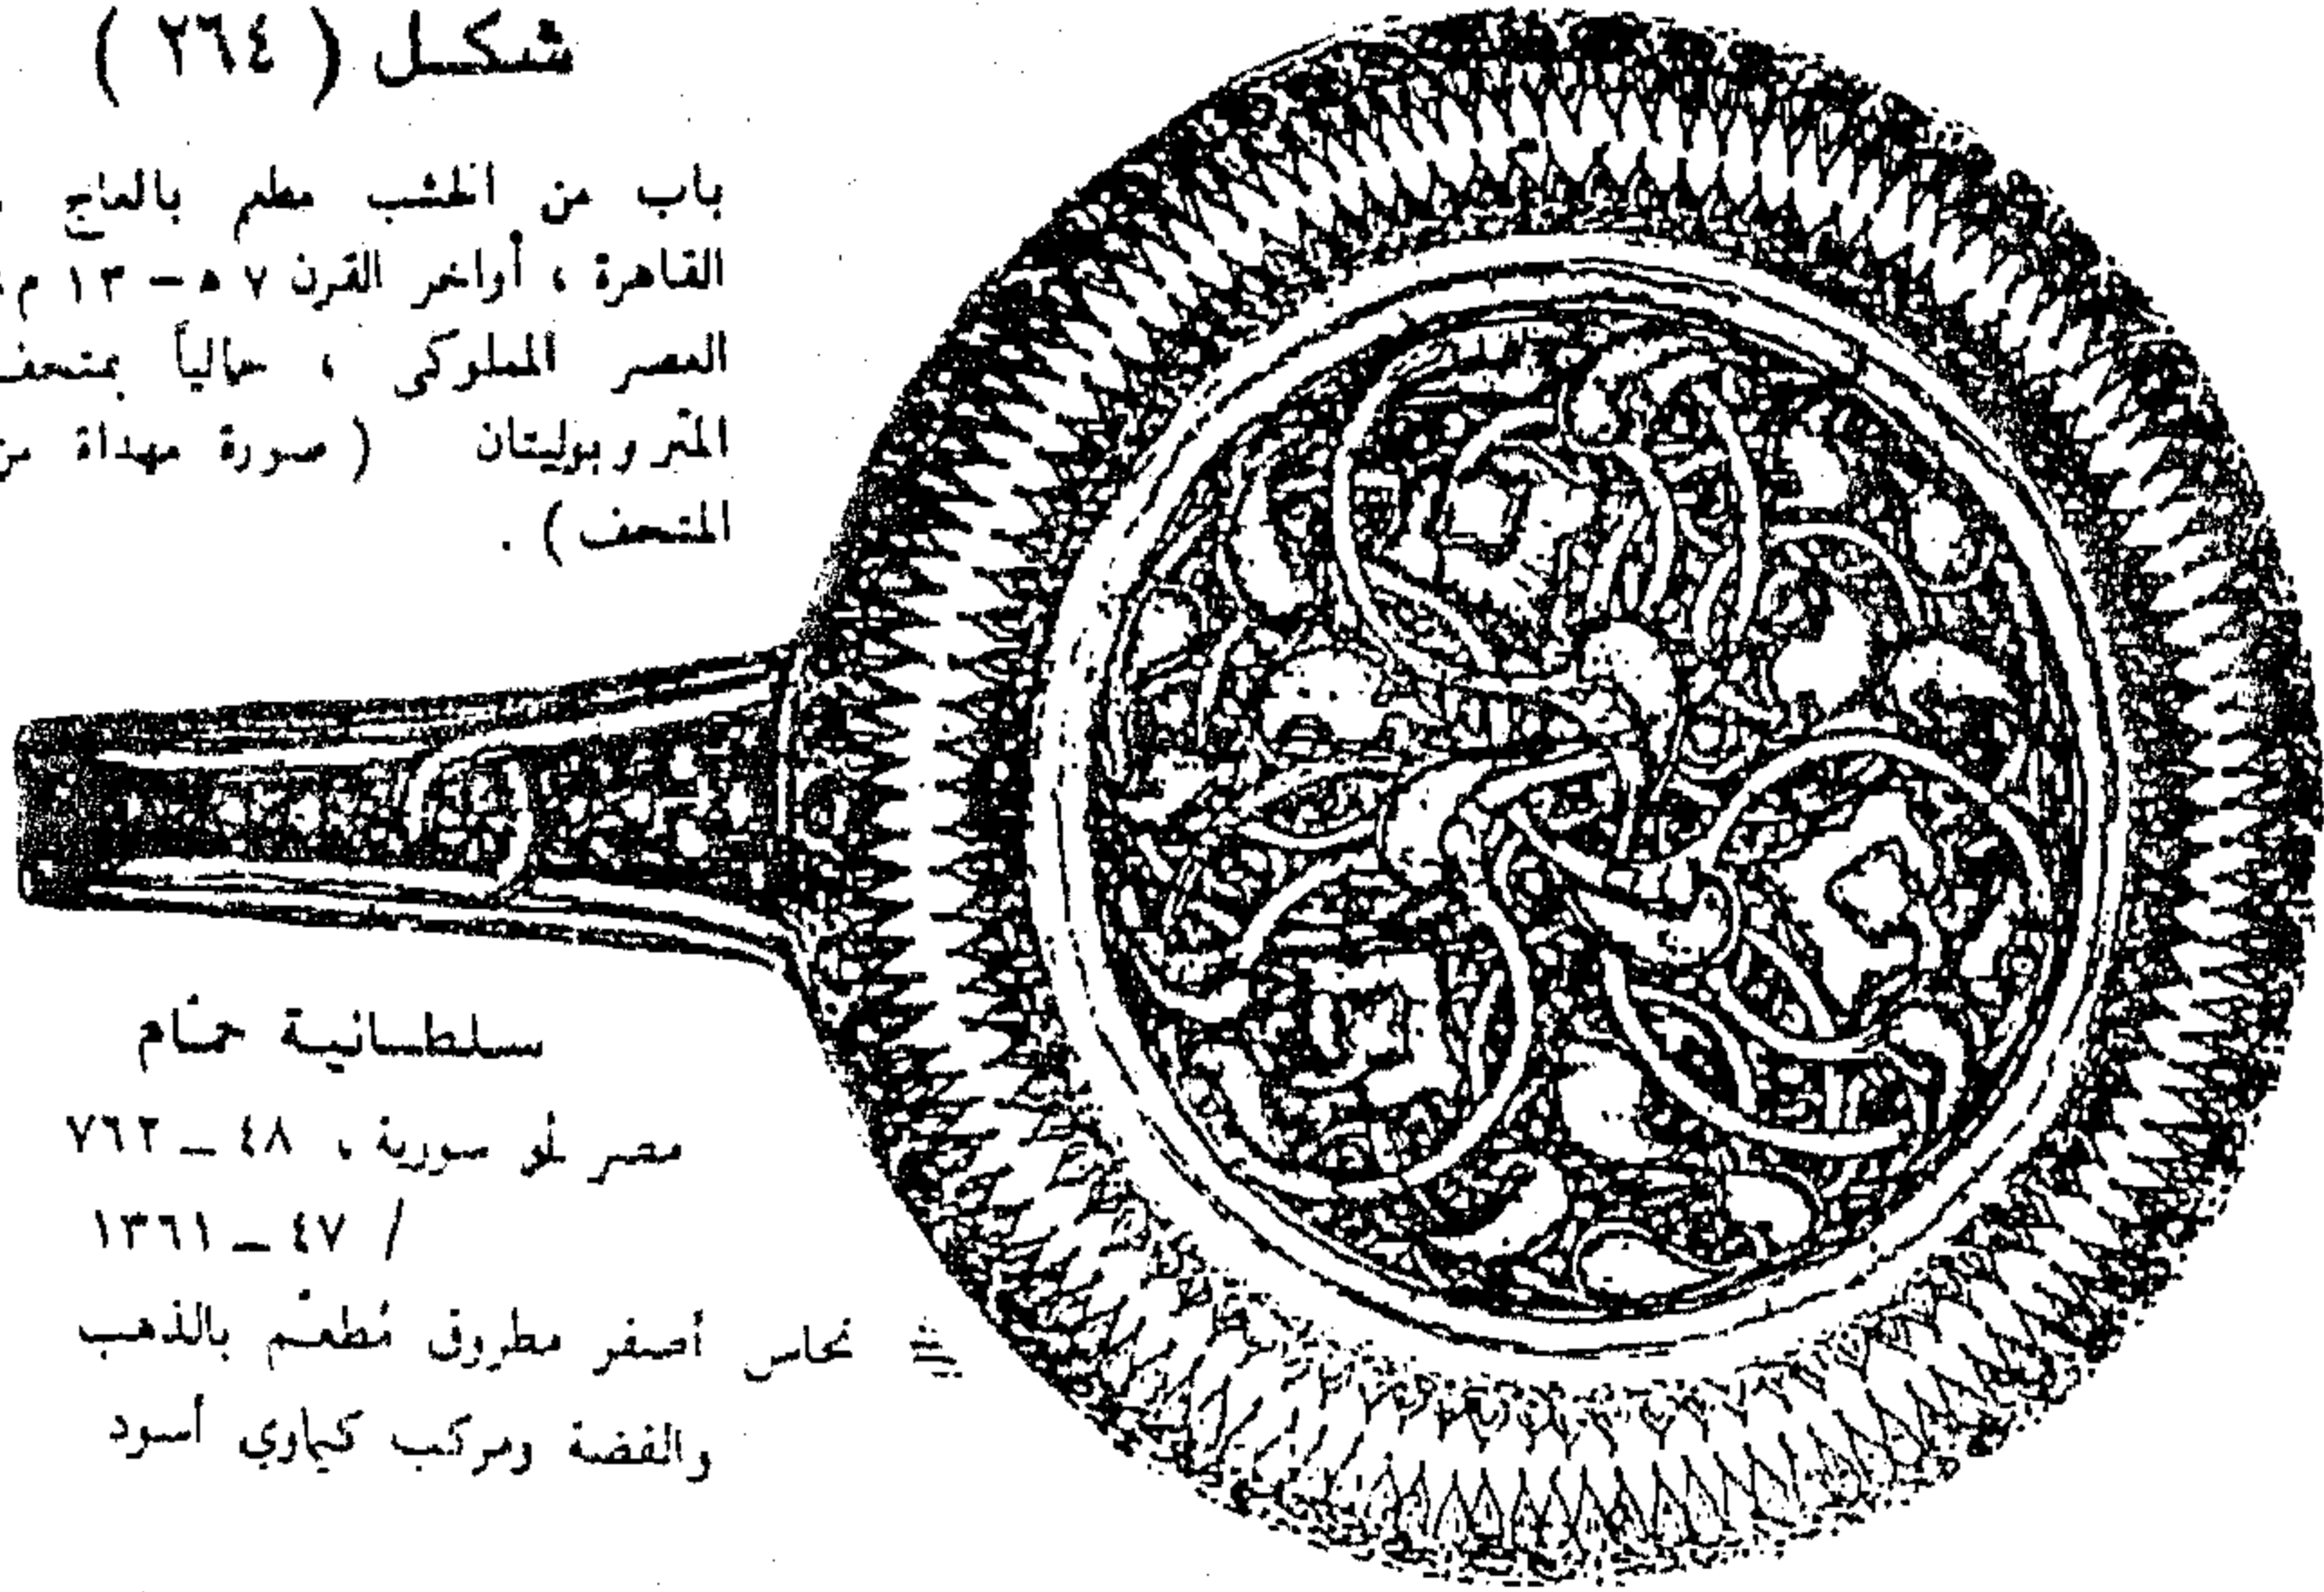 شكل ( ٢٦٤ )
باب من الخشب مطعم بالعاج ،
القاهرة ، أواخر القرن ٧ هـ – ١٣ م
العصر المملوكى ، حالياً بمتحف
المتروبوليتان ( صورة مهداة من
المتحف ) .
سلطانية حمّام
مصر أو سورية ، ٤٨ – ٧٦٢
/ ٤٧ – ١٣٦١
نحاس أصفر مطروق مُطعّم بالذهب
والفضة ومركب كيماوي أسود